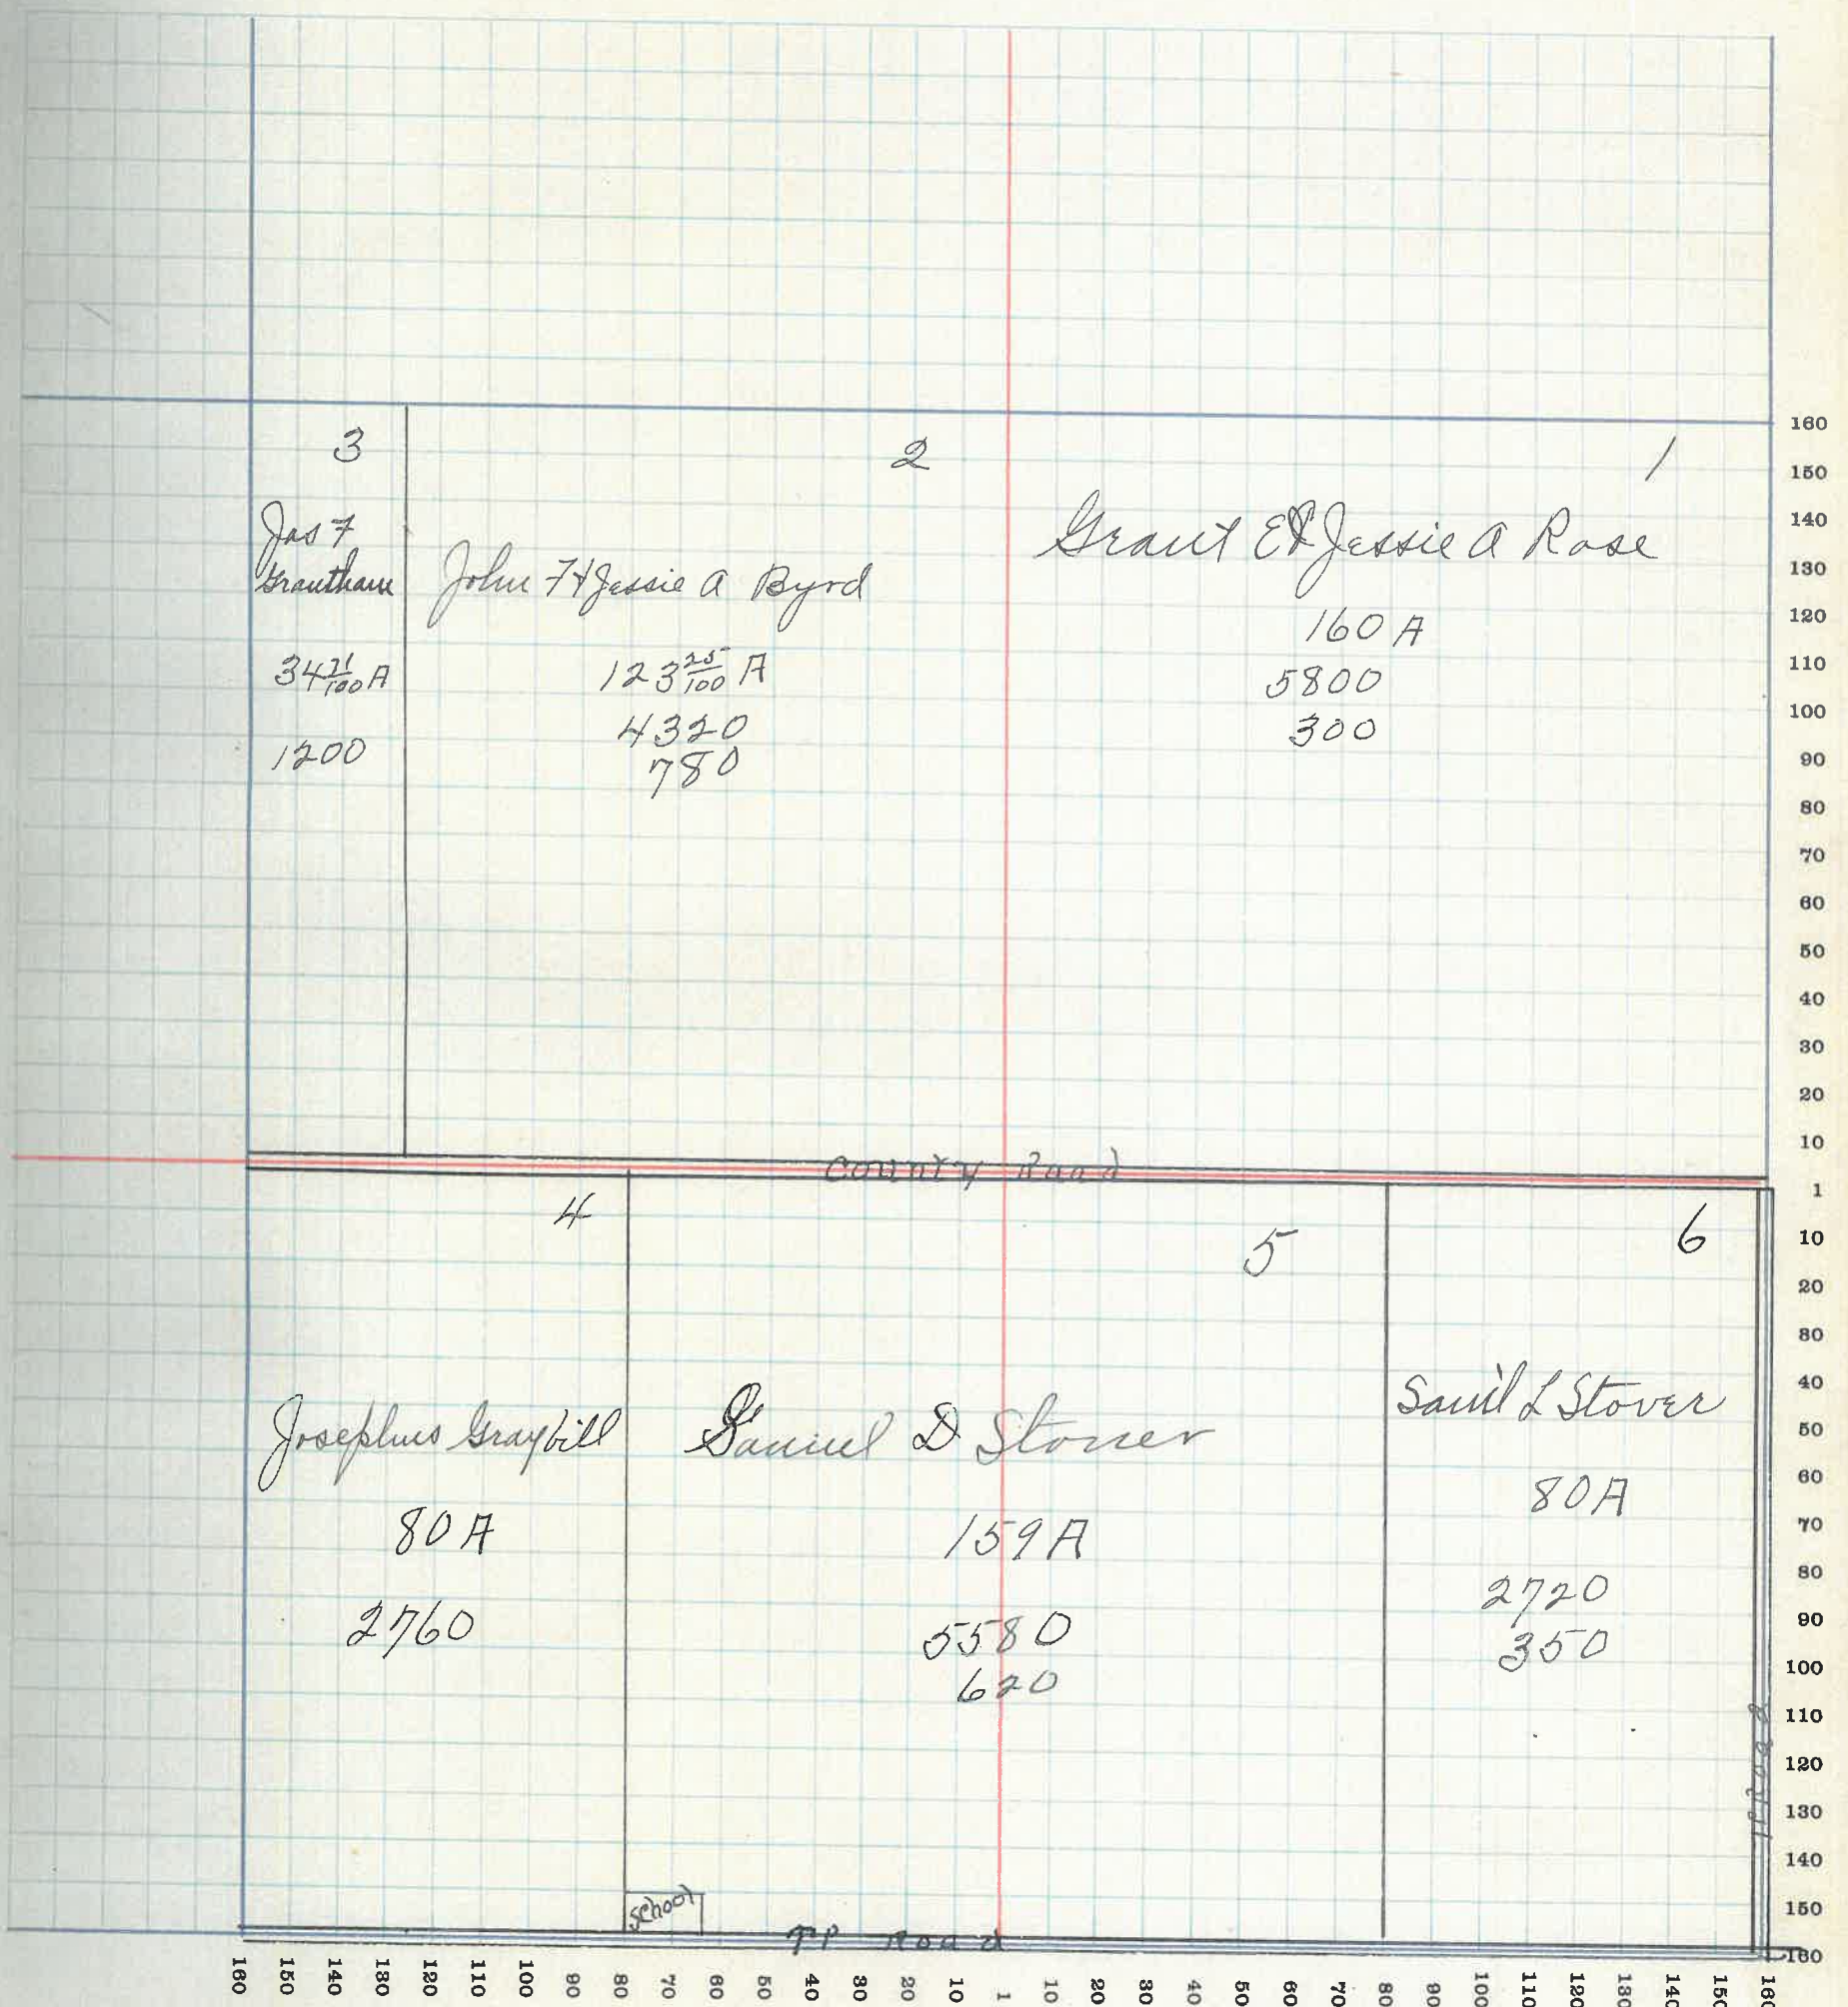 3
Jas F
Grantham
34 71/100 A
1200
2
John F & Jessie A Byrd
123 25/100 A
4320
780
1
Grant E & Jessie A Rose
160 A
5800
300
County Road
4
Josephus Graybill
80 A
2760
5
Samuel D Stoner
159 A
5580
620
6
Sam'l L Stover
80 A
2720
350
School
TP Road
TP Road
160
150
140
130
120
110
100
90
80
70
60
50
40
30
20
10
1
10
20
30
40
50
60
70
80
90
100
110
120
130
140
150
160
160 150 140 130 120 110 100 90 80 70 60 50 40 30 20 10 1 10 20 30 40 50 60 70 80 90 100 110 120 130 140 150 160